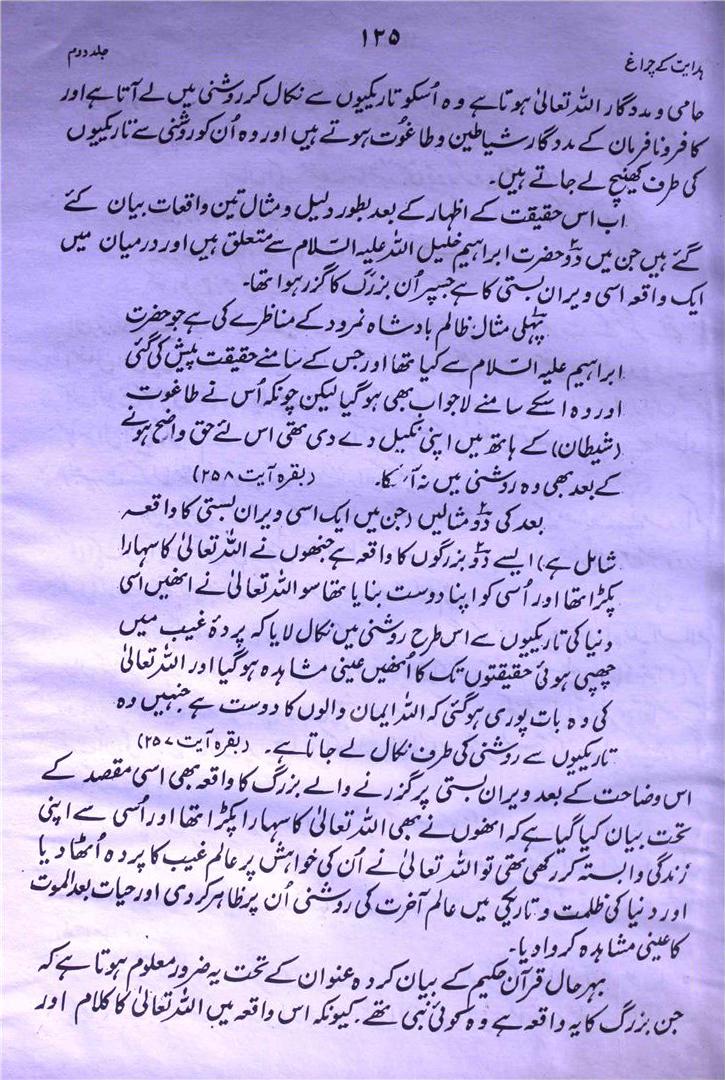 ۱۲۵
ہدایت کے چراغ
جلد دوم
حامی و مددگار اللہ تعالیٰ ہوتا ہے وہ اُسکو تاریکیوں سے نکال کر روشنی میں لے آتا ہے اور
کافر و نافرمان کے مددگار شیاطین و طاغوت ہوتے ہیں اور وہ اُن کو روشنی سے تاریکیوں
کی طرف کھینچ لے جاتے ہیں۔
اب اس حقیقت کے اظہار کے بعد بطور دلیل و مثال تین واقعات بیان کئے
گئے ہیں جن میں دو حضرت ابراہیم خلیل اللہ علیہ السّلام سے متعلق ہیں اور درمیان میں
ایک واقعہ اسی ویران بستی کا ہے جسپر اُن بزرگ کا گزر ہوا تھا۔
پہلی مثال ظالم بادشاہ نمرود کے مناظرے کی ہے جو حضرت
ابراہیم علیہ السّلام سے کیا تھا اور جس کے سامنے حقیقت پیش کی گئی
اور وہ اسکے سامنے لاجواب بھی ہو گیا لیکن چونکہ اُس نے طاغوت
(شیطان) کے ہاتھ میں اپنی نکیل دے دی تھی اس لئے حق واضح ہونے
کے بعد بھی وہ روشنی میں نہ آسکا۔ (بقرہ آیت ۲۵۸)
بعد کی دو مثالیں (جن میں ایک اسی ویران بستی کا واقعہ
شامل ہے) ایسے دو بزرگوں کا واقعہ ہے جنھوں نے اللہ تعالیٰ کا سہارا
پکڑا تھا اور اُسی کو اپنا دوست بنایا تھا سو اللہ تعالیٰ نے انھیں اسی
دنیا کی تاریکیوں سے اس طرح روشنی میں نکال لایا کہ پردۂ غیب میں
چھپی ہوئی حقیقتوں تک کا اُنھیں عینی مشاہدہ ہو گیا اور اللہ تعالیٰ
کی وہ بات پوری ہو گئی کہ اللہ ایمان والوں کا دوست ہے جنہیں وہ
تاریکیوں سے روشنی کی طرف نکال لے جاتا ہے۔ (بقرہ آیت ۲۵۷)
اس وضاحت کے بعد ویران بستی پر گزرنے والے بزرگ کا واقعہ بھی اسی مقصد کے
تحت بیان کیا گیا ہے کہ انھوں نے بھی اللہ تعالیٰ کا سہارا پکڑا تھا اور اُسی سے اپنی
زندگی وابستہ کر رکھی تھی تو اللہ تعالیٰ نے اُن کی خواہش پر عالم غیب کا پردہ اُٹھا دیا
اور دنیا کی ظلمت و تاریکی میں عالم آخرت کی روشنی اُن پر ظاہر کر دی اور حیات بعد الموت
کا عینی مشاہدہ کروا دیا۔
بہرحال قرآن حکیم کے بیان کردہ عنوان کے تحت یہ ضرور معلوم ہوتا ہے کہ
جن بزرگ کا یہ واقعہ ہے وہ کوئی نبی تھے۔ کیونکہ اس واقعہ میں اللہ تعالیٰ کا کلام اور